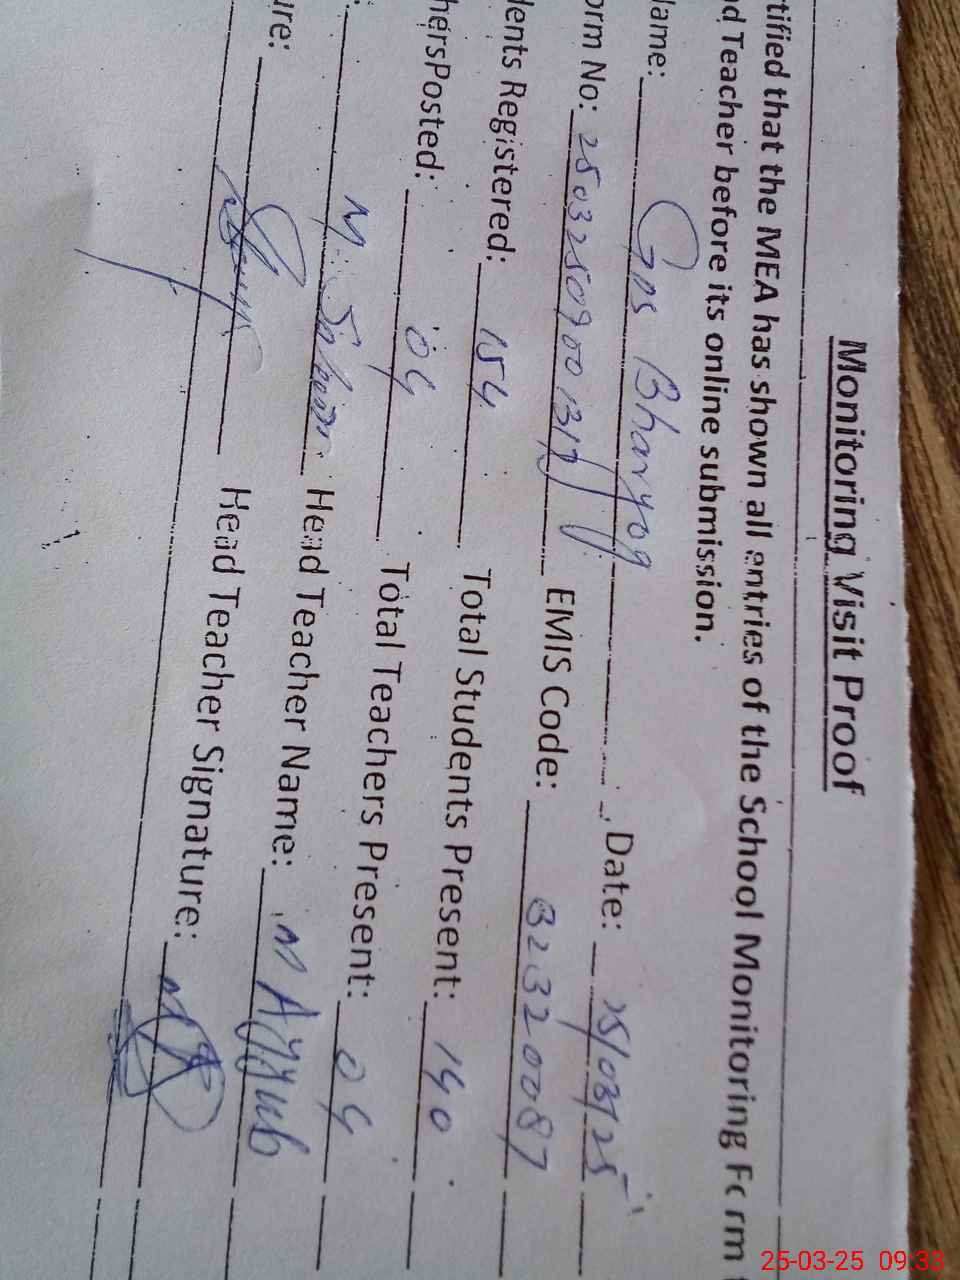 Monitoring Visit Proof
tified that the MEA has shown all entries of the School Monitoring Form
d Teacher before its online submission.
lame: GPS Bharyog Date: 25/03/25
orm No: EMIS Code: 32320087
dents Registered: 154 Total Students Present: 140
hersPosted: 04 Total Teachers Present: 04
M. Head Teacher Name: M Ayyub
ure: Head Teacher Signature:
25-03-25 09:33